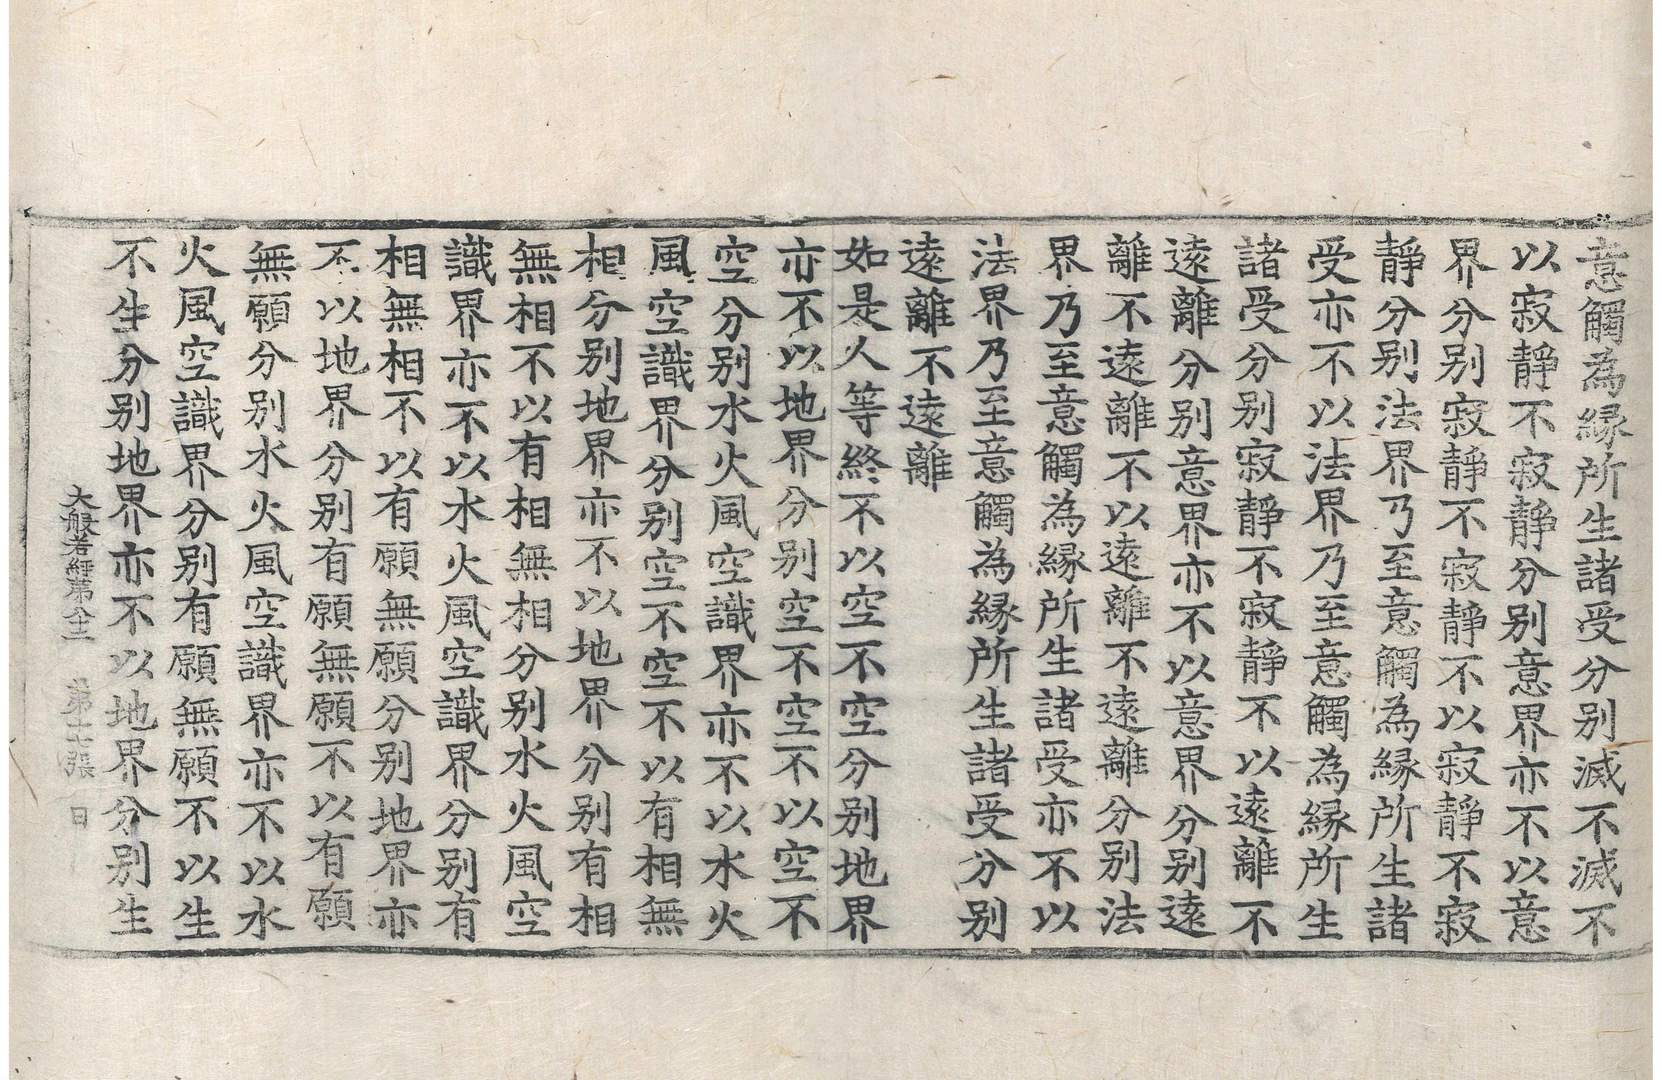 意觸為緣所生諸受分別滅不滅不
以寂靜不寂靜分別意界亦不以意
界分別寂靜不寂靜不以寂靜不寂
靜分別法界乃至意觸為緣所生諸
受亦不以法界乃至意觸為緣所生
諸受分別寂靜不寂靜不以遠離不
遠離分別意界亦不以意界分別遠
離不遠離不以遠離不遠離分別法
界乃至意觸為緣所生諸受亦不以
法界乃至意觸為緣所生諸受分別
遠離不遠離
如是人等終不以空不空分別地界
亦不以地界分別空不空不以空不
空分別水火風空識界亦不以水火
風空識界分別空不空不以有相無
相分別地界亦不以地界分別有相
無相不以有相無相分別水火風空
識界亦不以水火風空識界分別有
相無相不以有願無願分別地界亦
不以地界分別有願無願不以有願
無願分別水火風空識界亦不以水
火風空識界分別有願無願不以生
不生分別地界亦不以地界分別生
大般若經第八十二 第十七張 日